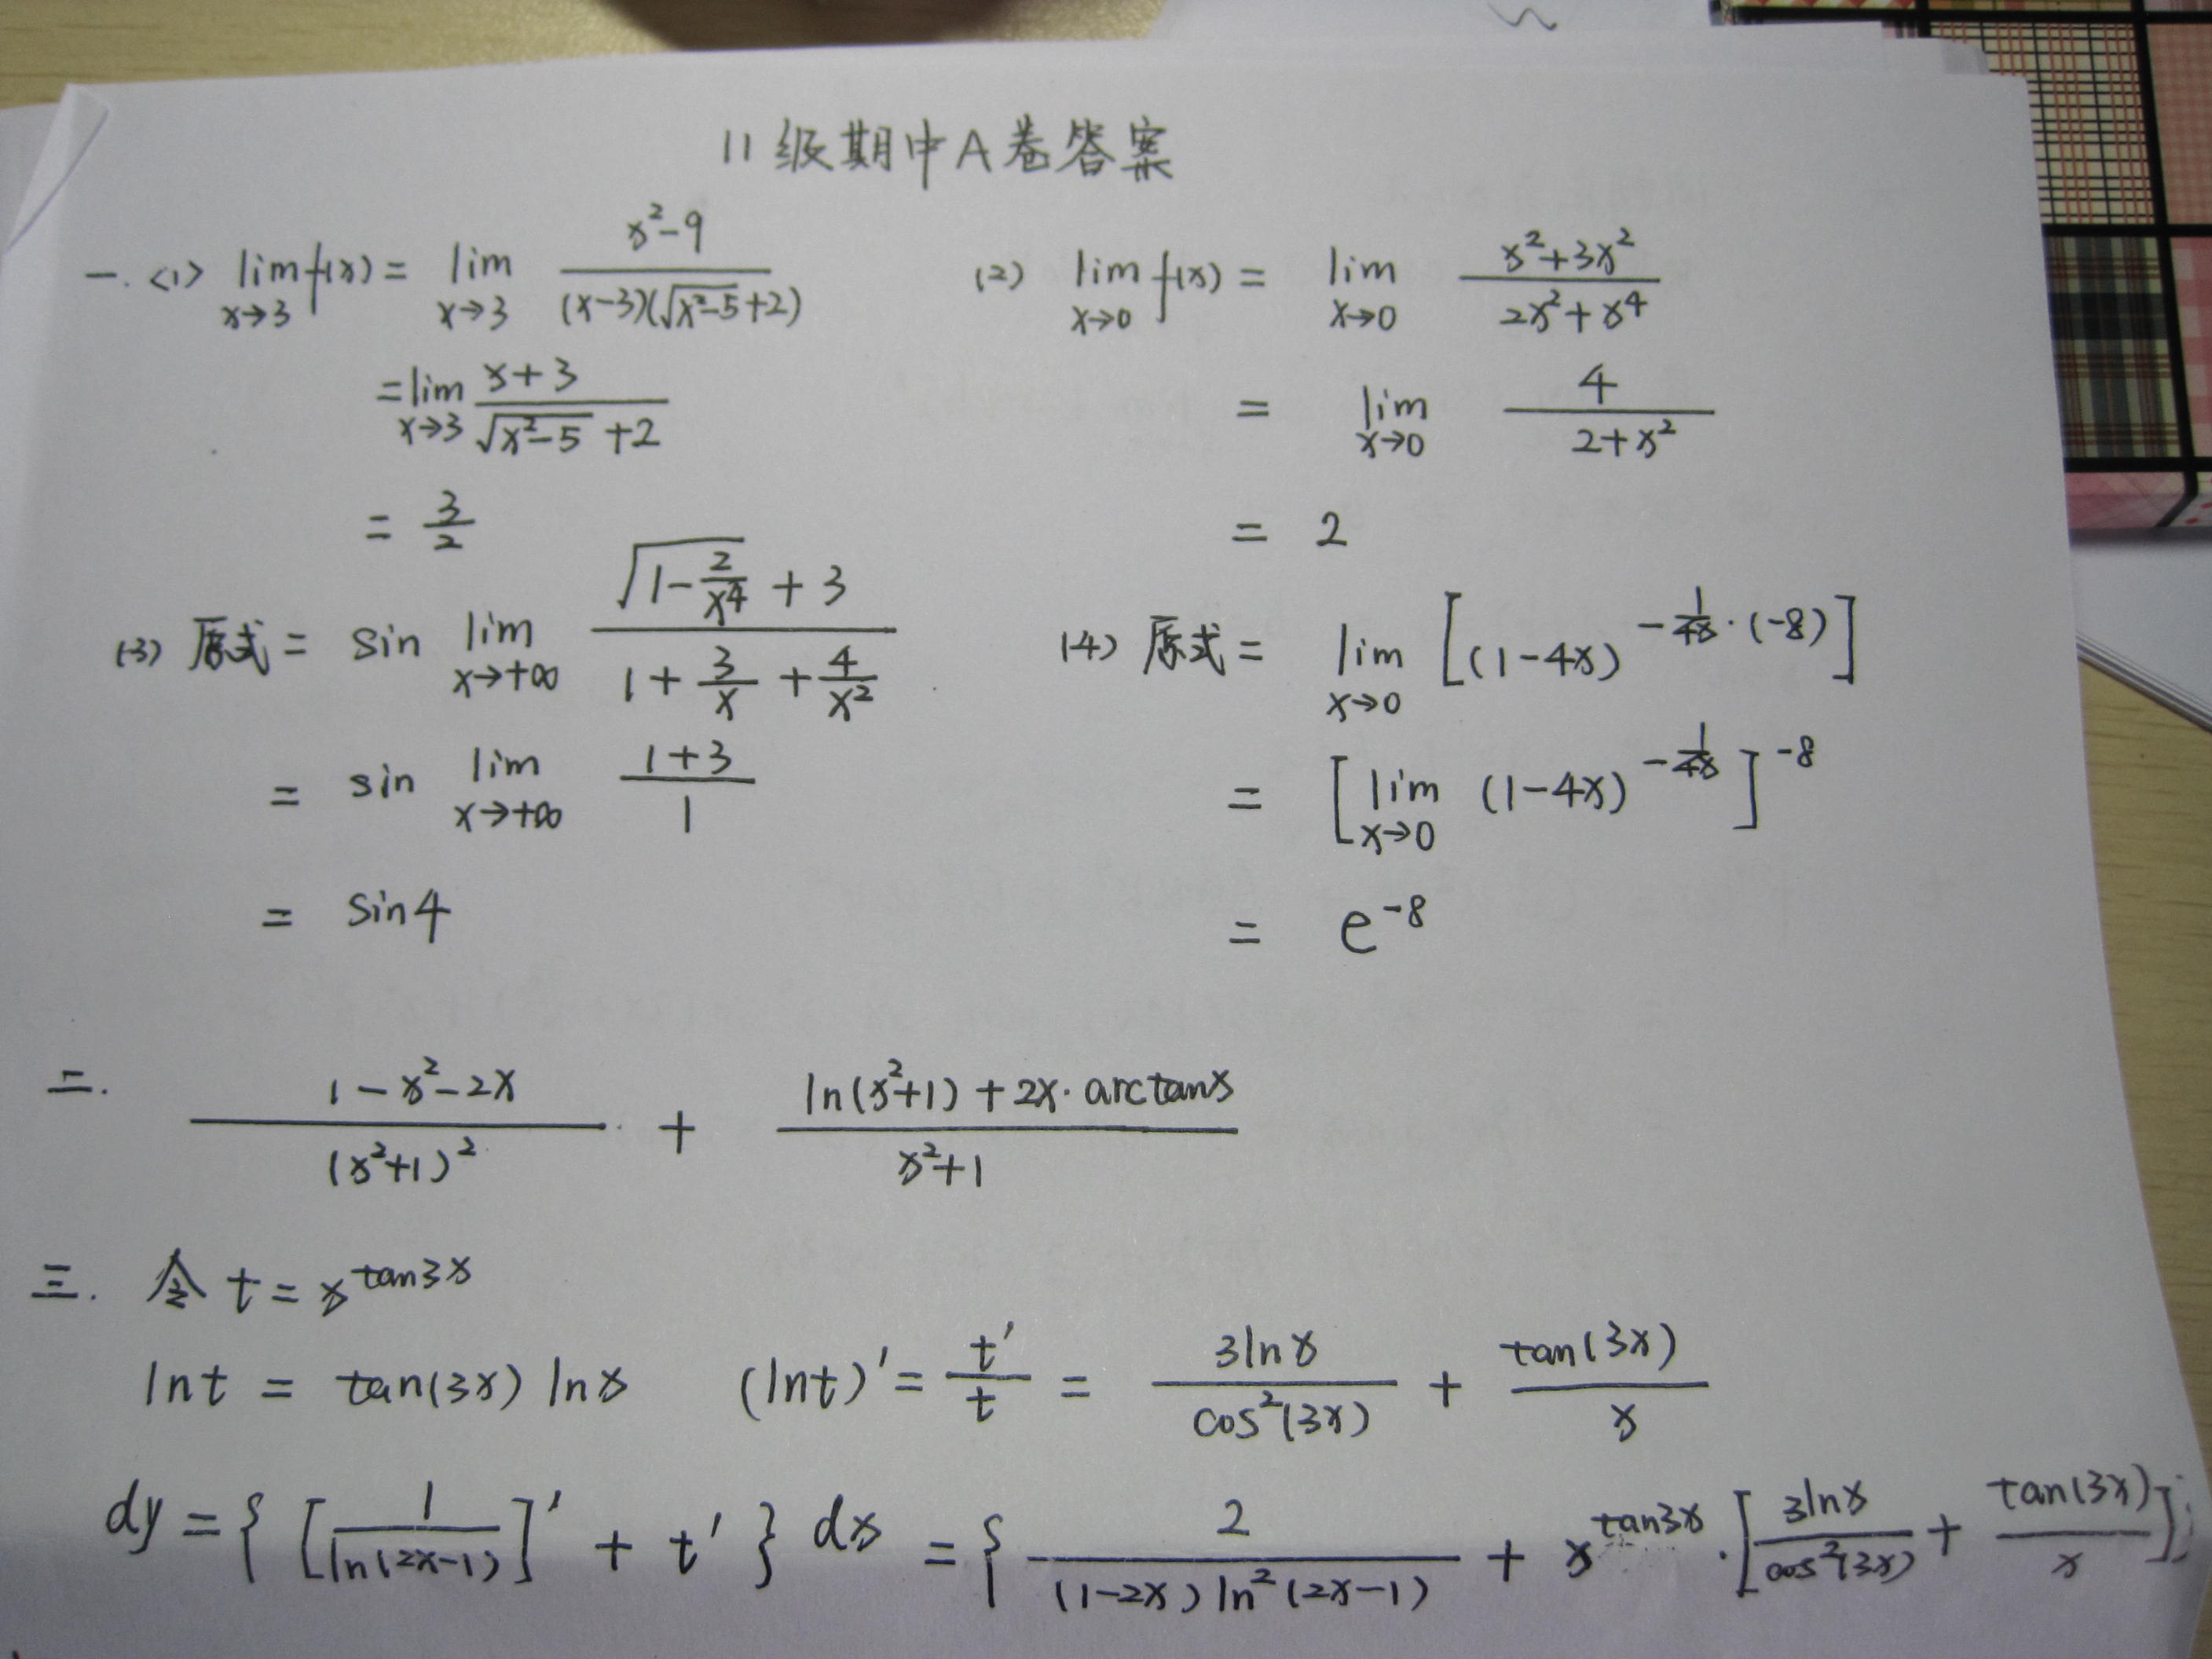 11级期中A卷答案
一. <1> lim_{x→3} f(x) = lim_{x→3} \frac{x^2-9}{(x-3)(\sqrt{x^2-5}+2)}
= lim_{x→3} \frac{x+3}{\sqrt{x^2-5}+2}
= \frac{3}{2}
(2) lim_{x→0} f(x) = lim_{x→0} \frac{x^2+3x^2}{2x^2+x^4}
= lim_{x→0} \frac{4}{2+x^2}
= 2
(3) 原式 = sin lim_{x→+∞} \frac{\sqrt{1-\frac{2}{x^4}}+3}{1+\frac{3}{x}+\frac{4}{x^2}}
= sin lim_{x→+∞} \frac{1+3}{1}
= sin4
(4) 原式 = lim_{x→0} [(1-4x)^{-\frac{1}{4x}·(-8)}]
= [lim_{x→0} (1-4x)^{-\frac{1}{4x}}]^{-8}
= e^{-8}
二. \frac{1-x^2-2x}{(x^2+1)^2} + \frac{ln(x^2+1)+2x·arctanx}{x^2+1}
三. 令 t = x^{tan3x}
lnt = tan(3x) lnx (lnt)' = \frac{t'}{t} = \frac{3lnx}{cos^2(3x)} + \frac{tan(3x)}{x}
dy = { [\frac{1}{ln(2x-1)}]' + t' } dx = { \frac{2}{(1-2x)ln^2(2x-1)} + x^{tan3x}·[\frac{3lnx}{cos^2(3x)} + \frac{tan(3x)}{x}]